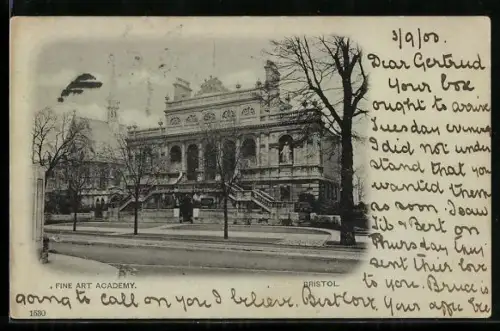 3/9/00.
Dear Gertrud
Your box
ought to arrive
Tuesday evening
I did not under
stand that you
wanted them
so soon. I saw
& Bert on
Thursday they
sent their love
to you. Bruce is
going to call on you I believe. Best love. Your
FINE ART ACADEMY.
BRISTOL.
1530